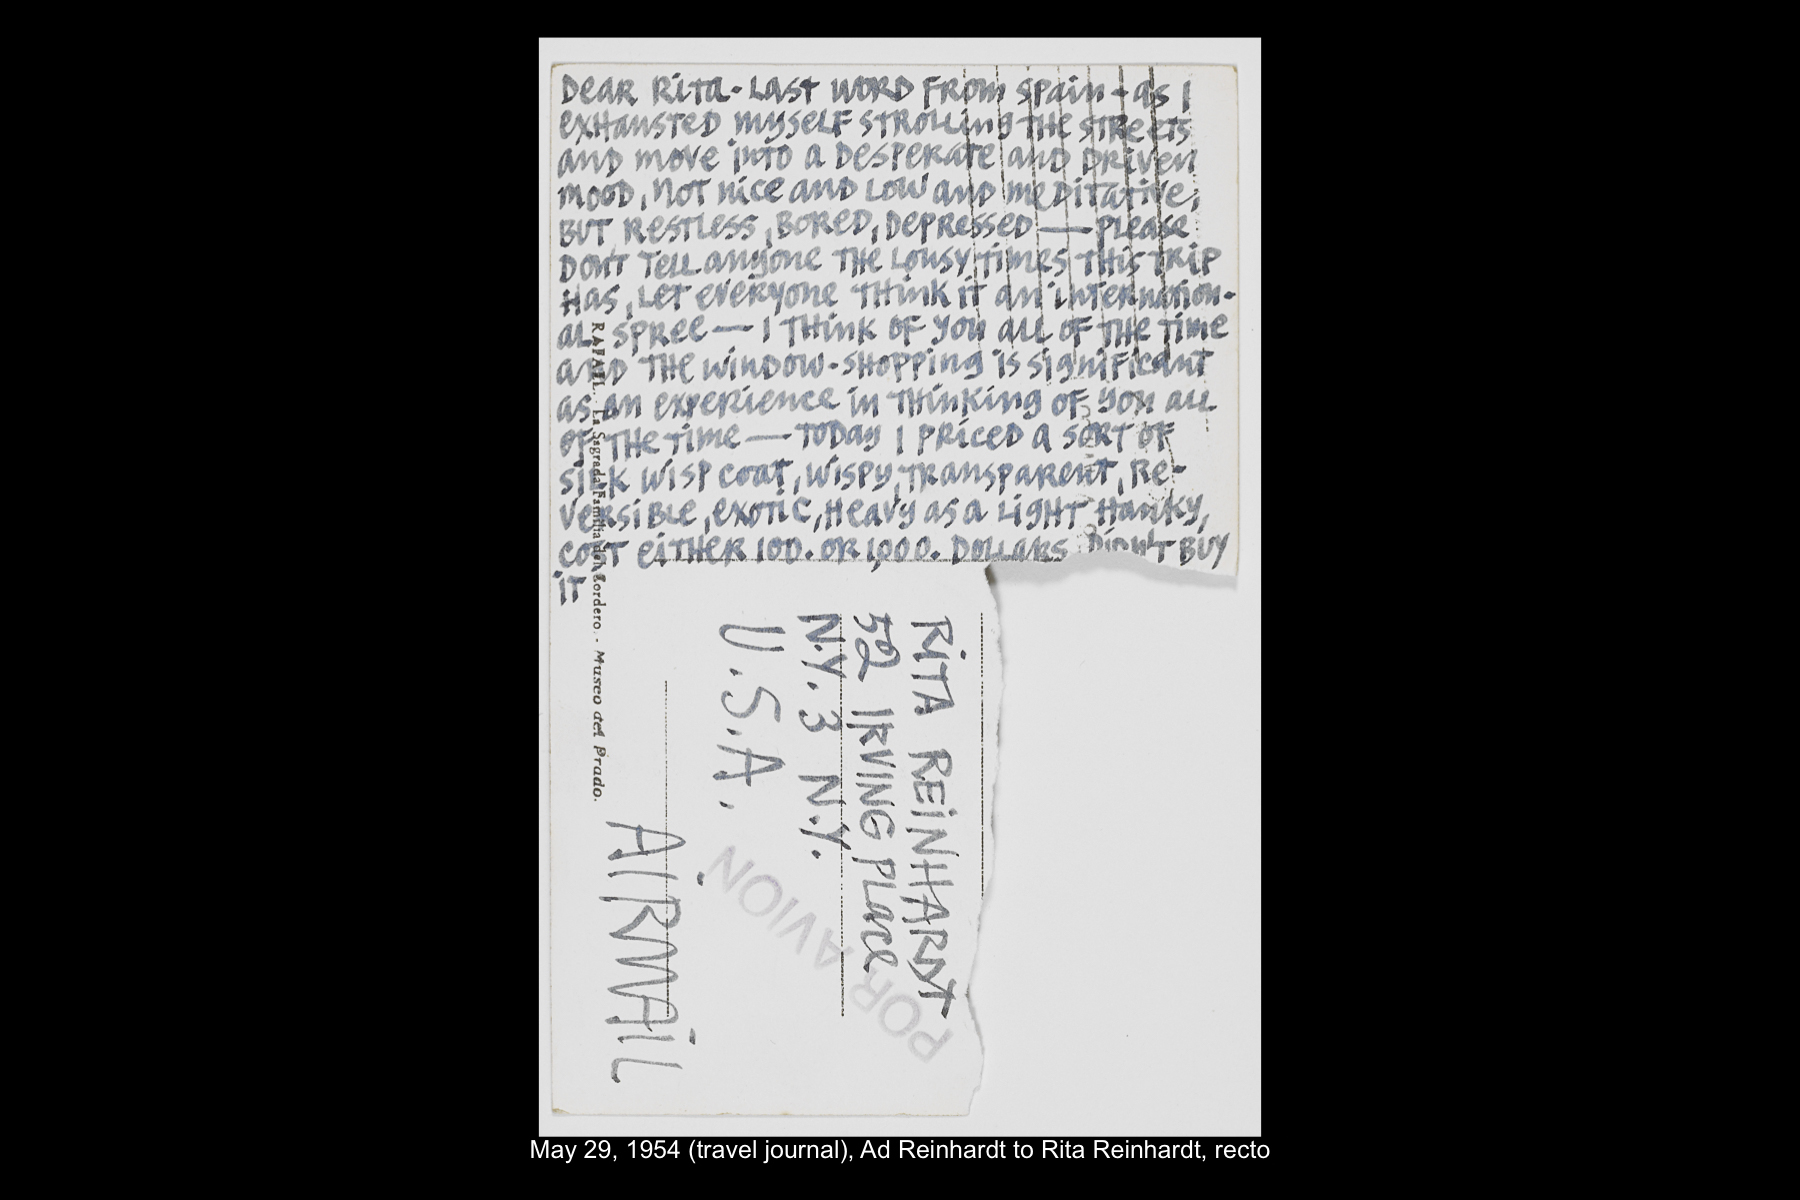 DEAR RITA - LAST WORD FROM SPAIN - AS I
EXHAUSTED MYSELF STROLLING THE STREETS
AND MOVE INTO A DESPERATE AND DRIVEN
MOOD, NOT NICE AND LOW AND MEDITATIVE,
BUT RESTLESS, BORED, DEPRESSED — PLEASE
DON'T TELL ANYONE THE LOUSY TIMES THIS TRIP
HAS, LET EVERYONE THINK IT AN INTERNATION-
AL SPREE — I THINK OF YOU ALL OF THE TIME
AND THE WINDOW-SHOPPING IS SIGNIFICANT
AS AN EXPERIENCE IN THINKING OF YOU ALL
OF THE TIME — TODAY I PRICED A SORT OF
SILK WISP COAT, WISPY, TRANSPARENT, RE-
VERSIBLE, EXOTIC, HEAVY AS A LIGHT HANKY,
COST EITHER 100. OR 1,000. DOLLARS DIDN'T BUY
IT
RAFAEL. - La Sagrada Familia del Cordero. - Museo del Prado.
RITA REINHARDT
52 IRVING PLACE
N.Y. 3 N.Y.
U.S.A.
AIRMAIL
POR AVION
May 29, 1954 (travel journal), Ad Reinhardt to Rita Reinhardt, recto